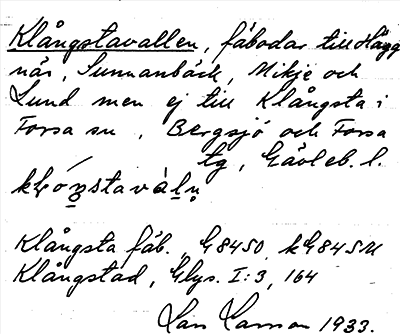 Klångstavallen, fäbodar till Hägg
när, Sunnanbäck, Mikje och
Lund men ej till Klångsta i
Forsa sn, Bergsjö och Forsa
tg, Gävleb. l.
Klångsta fäb., G8450, kG845M
Klångstad, Glys. I:3, 164
Lars Larsson 1933.